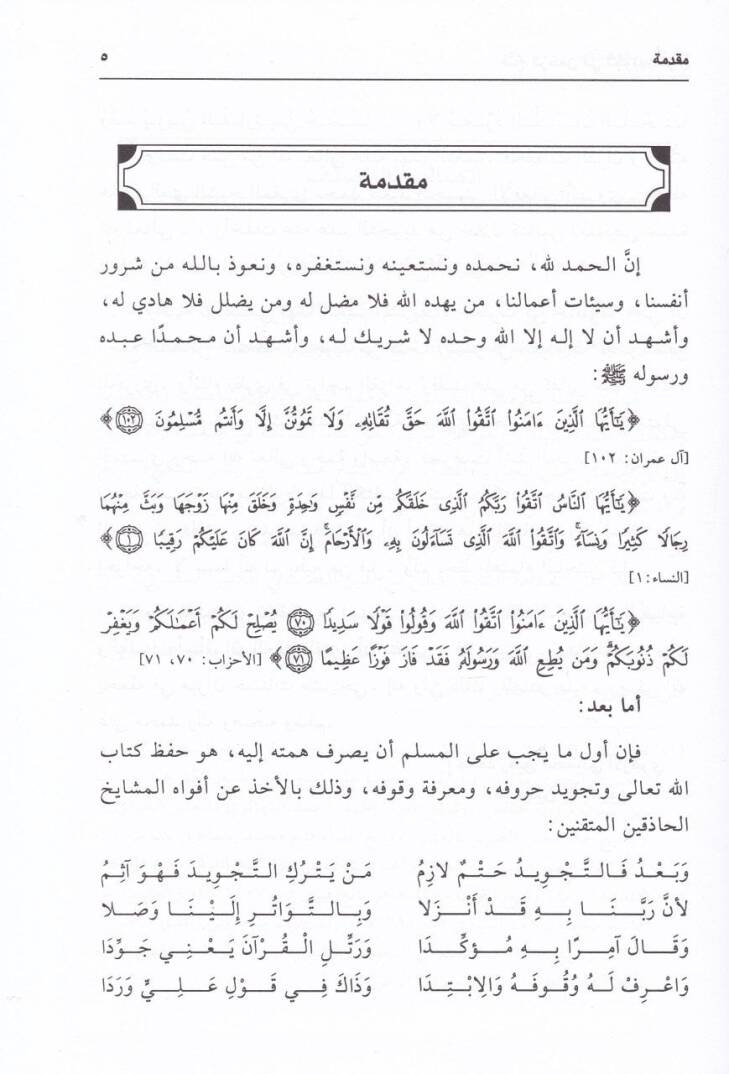 مقدمة ٥
مقدمة
إنَّ الحمد لله، نحمده ونستعينه ونستغفره، ونعوذ بالله من شرور
أنفسنا، وسيئات أعمالنا، من يهده الله فلا مضل له ومن يضلل فلا هادي له،
وأشهد أن لا إله إلا الله وحده لا شريك له، وأشهد أن محمدًا عبده
ورسوله ﷺ:
﴿يَٰٓأَيُّهَا ٱلَّذِينَ ءَامَنُوا۟ ٱتَّقُوا۟ ٱللَّهَ حَقَّ تُقَاتِهِۦ وَلَا تَمُوتُنَّ إِلَّا وَأَنتُم مُّسْلِمُونَ ۝١٠٢﴾
[آل عمران: ١٠٢]
﴿يَٰٓأَيُّهَا ٱلنَّاسُ ٱتَّقُوا۟ رَبَّكُمُ ٱلَّذِى خَلَقَكُم مِّن نَّفْسٍ وَٰحِدَةٍ وَخَلَقَ مِنْهَا زَوْجَهَا وَبَثَّ مِنْهُمَا
رِجَالًا كَثِيرًا وَنِسَآءً ۚ وَٱتَّقُوا۟ ٱللَّهَ ٱلَّذِى تَسَآءَلُونَ بِهِۦ وَٱلْأَرْحَامَ ۚ إِنَّ ٱللَّهَ كَانَ عَلَيْكُمْ رَقِيبًا ۝١﴾
[النساء: ١]
﴿يَٰٓأَيُّهَا ٱلَّذِينَ ءَامَنُوا۟ ٱتَّقُوا۟ ٱللَّهَ وَقُولُوا۟ قَوْلًا سَدِيدًا ۝٧٠ يُصْلِحْ لَكُمْ أَعْمَٰلَكُمْ وَيَغْفِرْ
لَكُمْ ذُنُوبَكُمْ ۗ وَمَن يُطِعِ ٱللَّهَ وَرَسُولَهُۥ فَقَدْ فَازَ فَوْزًا عَظِيمًا ۝٧١﴾ [الأحزاب: ٧٠، ٧١]
أما بعد:
فإن أول ما يجب على المسلم أن يصرف همته إليه، هو حفظ كتاب
الله تعالى وتجويد حروفه، ومعرفة وقوفه، وذلك بالأخذ عن أفواه المشايخ
الحاذقين المتقنين:
وَبَعْدُ فَالتَّجْوِيدُ حَتْمٌ لازِمُ مَنْ يَتْرُكِ التَّجْوِيدَ فَهْوَ آثِمُ
لأنَّ رَبَّنَا بِهِ قَدْ أَنْزَلا وَبِالتَّوَاتُرِ إِلَيْنَا وَصَلا
وَقَالَ آمِرًا بِهِ مُؤكِّدًا وَرَتِّلِ الْقُرْآنَ يَعْنِي جَوِّدَا
وَاعْرِفْ لَهُ وُقُوفَهُ وَالِابْتِدَا وَذَاكَ فِي قَوْلِ عَلِيٍّ وَرَدَا